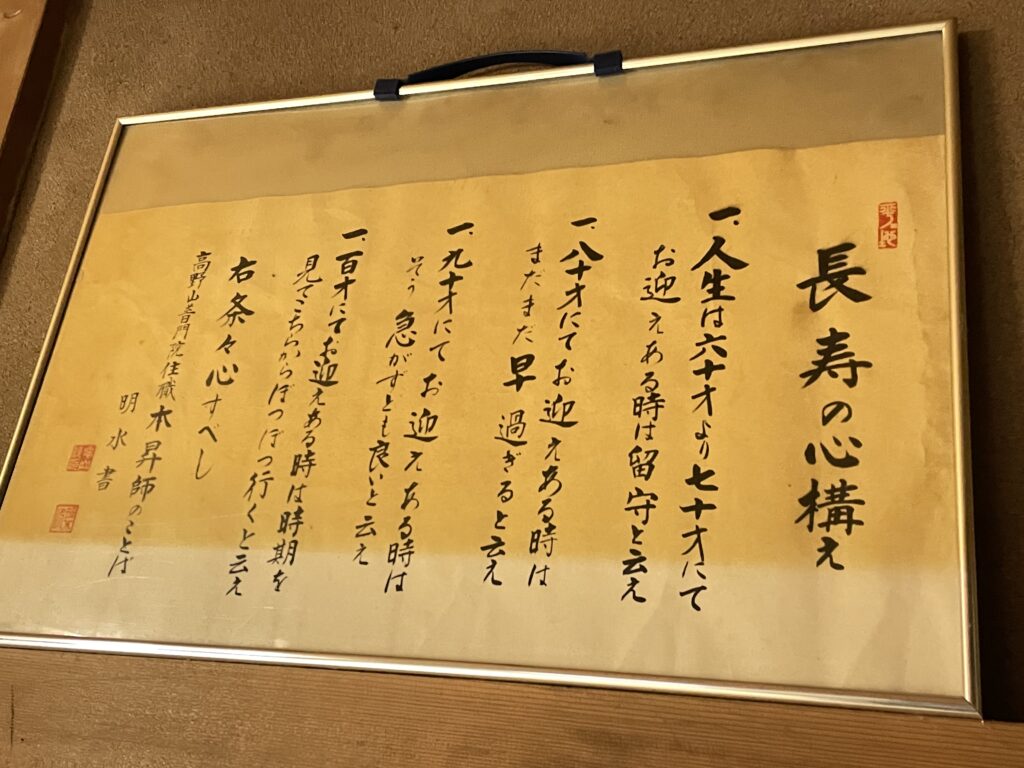 長寿の心構え
一、人生は六十才より七十才にて
お迎えある時は留守と云え
一、八十才にてお迎えある時は
まだまだ早過ぎると云え
一、九十才にてお迎えある時は
そう急がずとも良いと云え
一、百才にてお迎えある時は時期を
見てこちらからぼつぼつ行くと云え
右条々心すべし
高野山普門院住職本昇師のことば
明水書